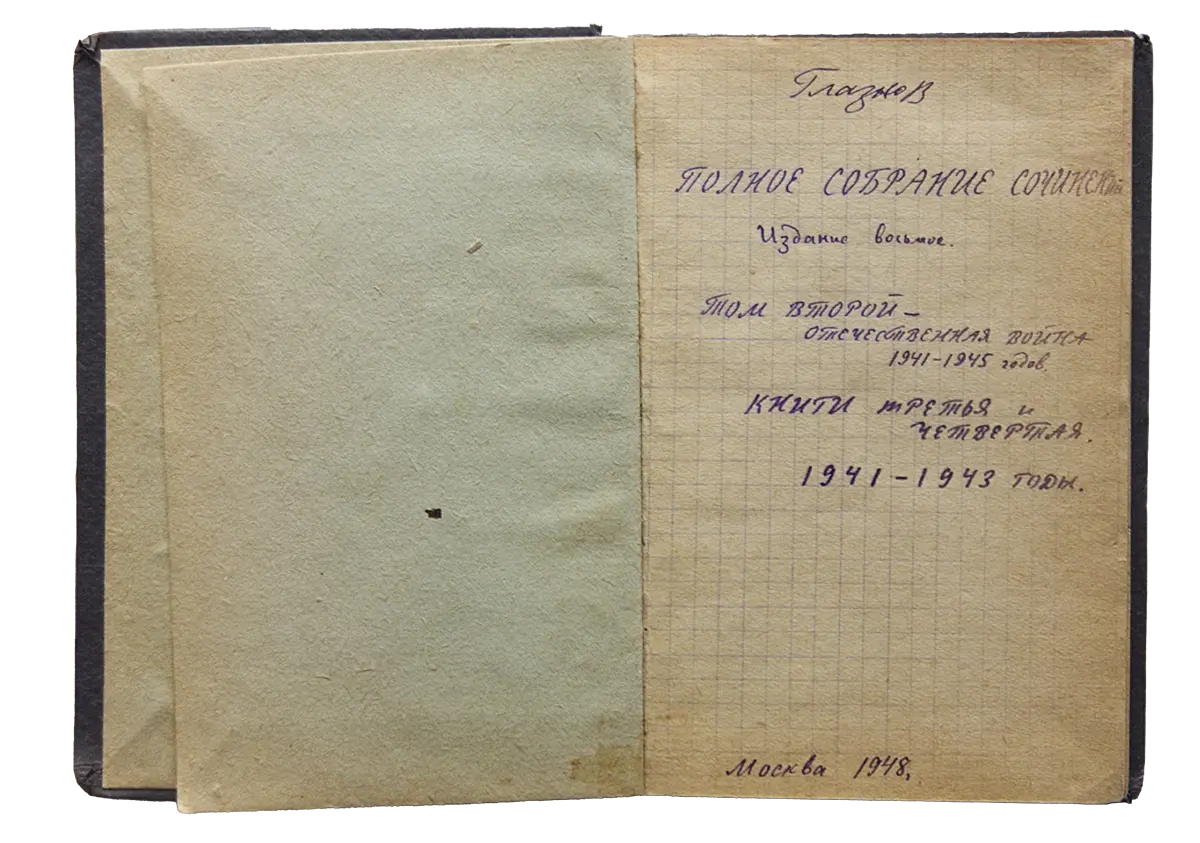 Глазков
ПОЛНОЕ СОБРАНИЕ СОЧИНЕНИЙ
Издание восьмое.
ТОМ ВТОРОЙ –
ОТЕЧЕСТВЕННАЯ ВОЙНА
1941–1945 годов.
КНИГИ ТРЕТЬЯ И
ЧЕТВЕРТАЯ.
1941–1943 ГОДЫ.
Москва 1948,